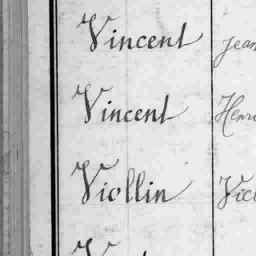 Vincent Jean
Vincent Henri
Viollin Vict